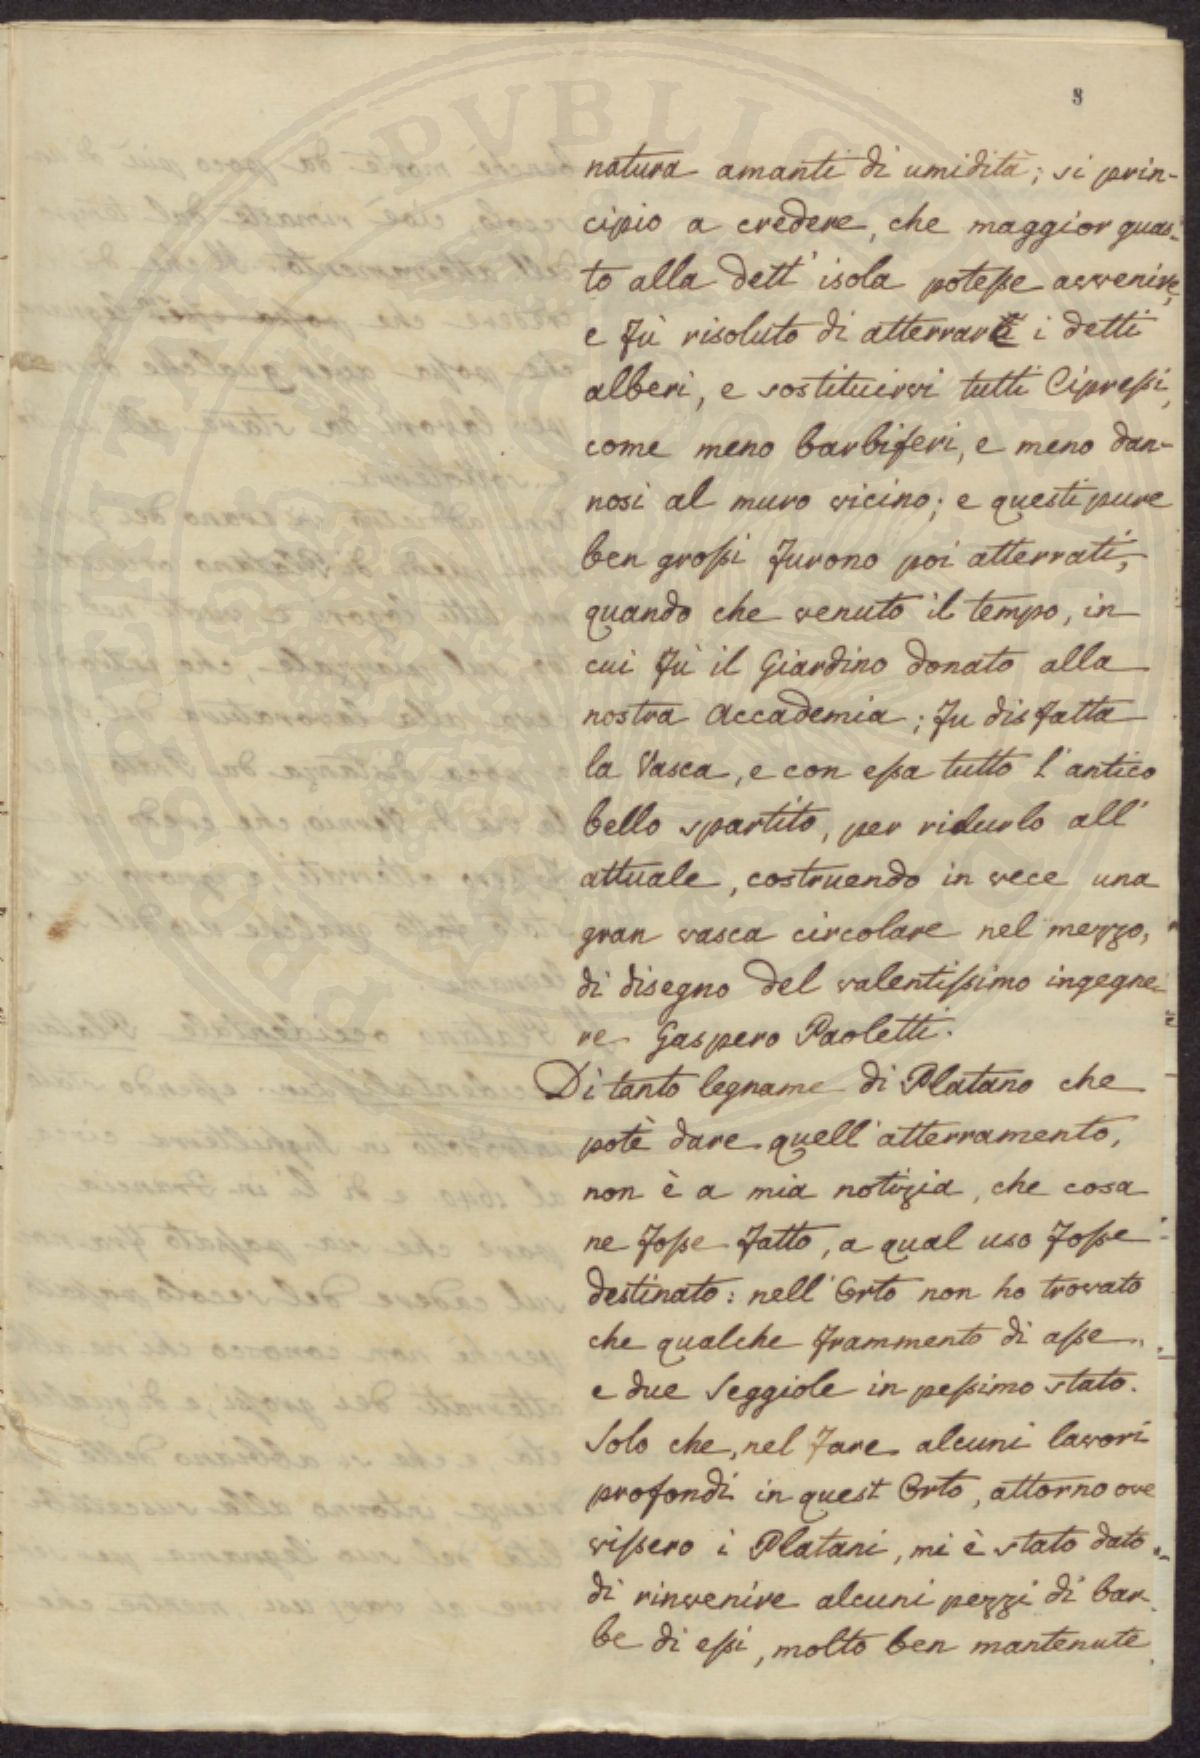 8
natura amanti di umidità; si prin-
cipio a credere, che maggior guas-
to alla dett' isola potesse avvenire,
e fù risoluto di atterrare i detti
alberi, e sostituirvi tutti Cipressi,
come meno barbiferi, e meno dan-
nosi al muro vicino; e questi pure
ben grossi furono poi atterrati,
quando che venuto il tempo, in
cui fù il Giardino donato alla
nostra Accademia; fu disfatta
la Vasca, e con essa tutto l'antico
bello spartito, per ridurlo all'
attuale, costruendo in vece una
gran vasca circolare nel mezzo,
di disegno del valentissimo ingegne-
re Gaspero Paoletti.
Di tanto legname di Platano che
potè dare quell'atterramento,
non è a mia notizia, che cosa
ne fosse fatto, a qual uso fosse
destinato: nell'Orto non ho trovato
che qualche frammento di asse
e due Seggiole in pessimo stato.
Solo che, nel fare alcuni lavori
profondi in quest Orto, attorno ove
vissero i Platani, mi è stato dato
di rinvenire alcuni pezzi di bar-
be di essi, molto ben mantenute